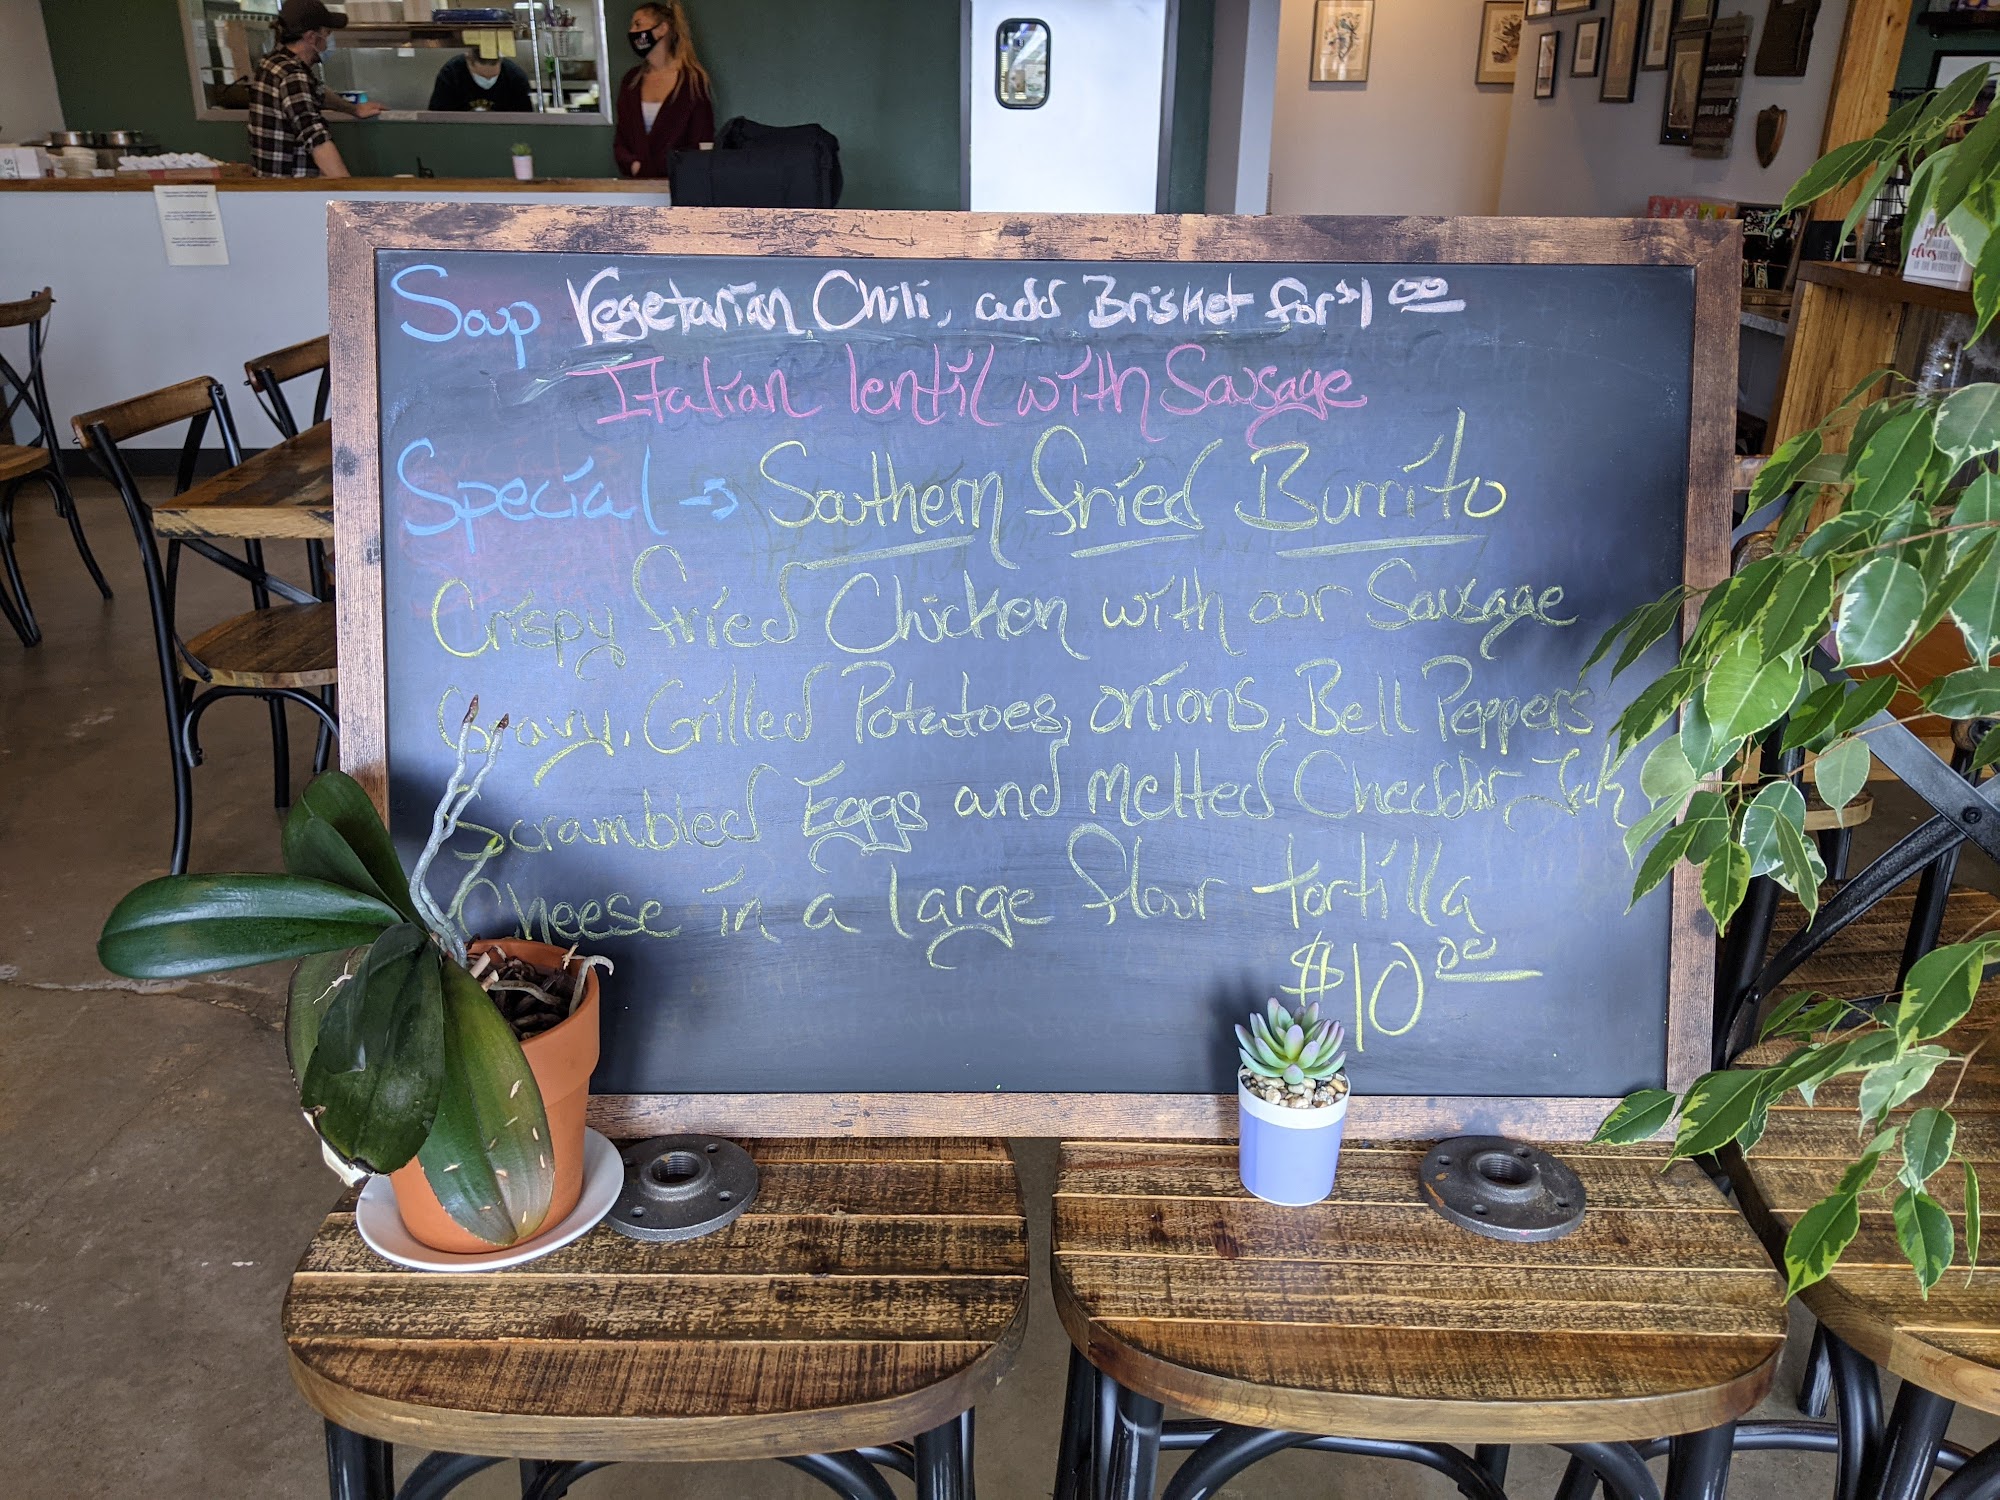 Soup Vegetarian Chili, add Brisket for $1 00
Italian lentil with Sausage
Special → Southern fried Burrito
Crispy fried Chicken with our Sausage
Gravy, Grilled Potatoes, onions, Bell Peppers
Scrambled Eggs and melted Cheddar Jack
Cheese in a large flour tortilla
$10 00